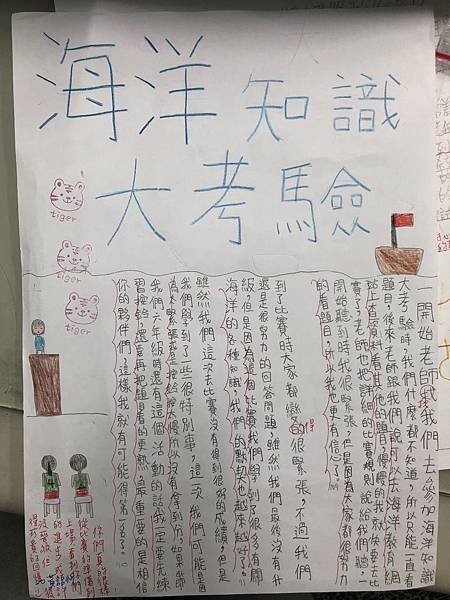 海洋知識
大考驗
tiger
tiger
tiger
一開始老師找我們去參加海洋知識
大考驗時,我們什麼都不知道,所以只能一直看
題目,後來老師跟我們說可以去海洋教育網
站上查資料看其他的題目,慢慢的我就快要去比
賽了,老師也把詳細的比賽規則說給我們聽,一
開始聽到時我很緊張,但是因為大家都很努力
的看題目,所以我也更有信心了。
到了比賽時大家都變的很緊張,不過我們
得
還是很努力的回答問題,雖然我們最後沒有什
級,但是因為這個比賽我們學到了很多有關
海洋的各種知識,我們的默契也越來越好了。
雖然我們這次去比賽沒有得到很好的成績,但是
我們學到了一些很特別事,這一次我們可能是
因為太緊張或是按鈴太慢所以沒有拿到分,如果
我們六年級時還有這個活動的話我一定要先練
習按鈴,還要再把題目看的更熟,最重要的是相信
你的夥伴們,這樣我就有可能得第一名了。
你們真的很棒
從比賽的準備到